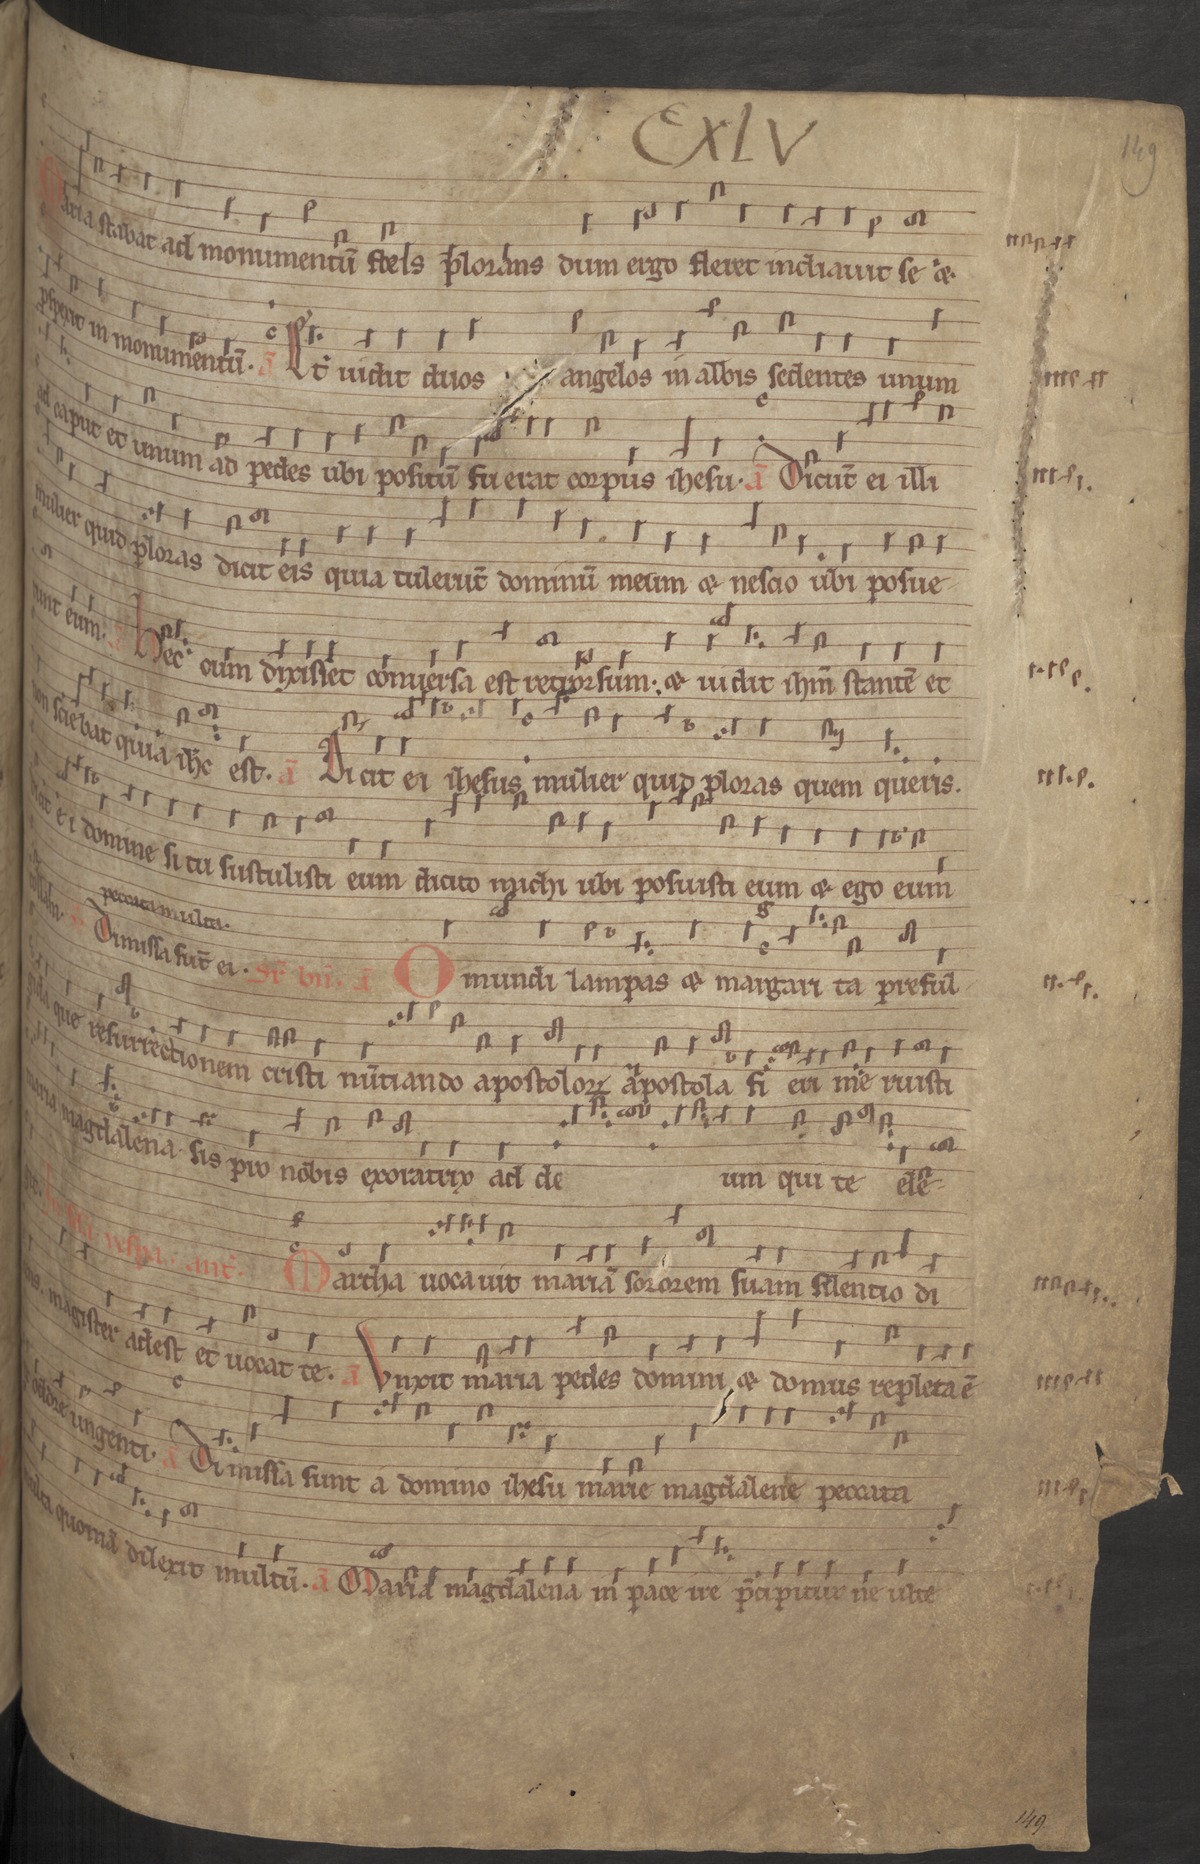 CXLV
149
Maria stabat ad monumentū flens plorans dum ergo fleret inclinavit se &
pspexit in monumentū. ā Et uidit duos angelos in albis sedentes unum
ad caput et unum ad pedes ubi positū fuerat corpus ihesu. ā Dicūt ei illi
mulier quid ploras dicit eis quia tulerūt dominū meum & nescio ubi posue
runt eum. ā hec cum dixisset conuersa est retrorsum. & uidit ihm̄ stantē et
non sciebat quia ihc est. ā Dicit ei ihesus mulier quid ploras quem queris.
dicit ei domine si tu sustulisti eum dicito michi ubi posuisti eum & ego eum
tollam. ā Dimissa sūt ei. peccata multa. ā O mundi lampas & margarita preful
gida que resurrectionem cristi nūtiando apostoloꝝ apostola fieri meruisti
maria magdalena sis pro nobis exoratrix ad deum qui te ele
git. ant. Martha uocauit mariā sororem suam silentio di
cens. magister adest et uocat te. ā Vnxit maria pedes domini & domus repleta ē
ex odore ungenti. ā Dimissa sunt a domino ihesu marie magdalene peccata
multa quoniā dilexit multū. ā Maria magdalena in pace ire p̄cipitur ne ulte
149